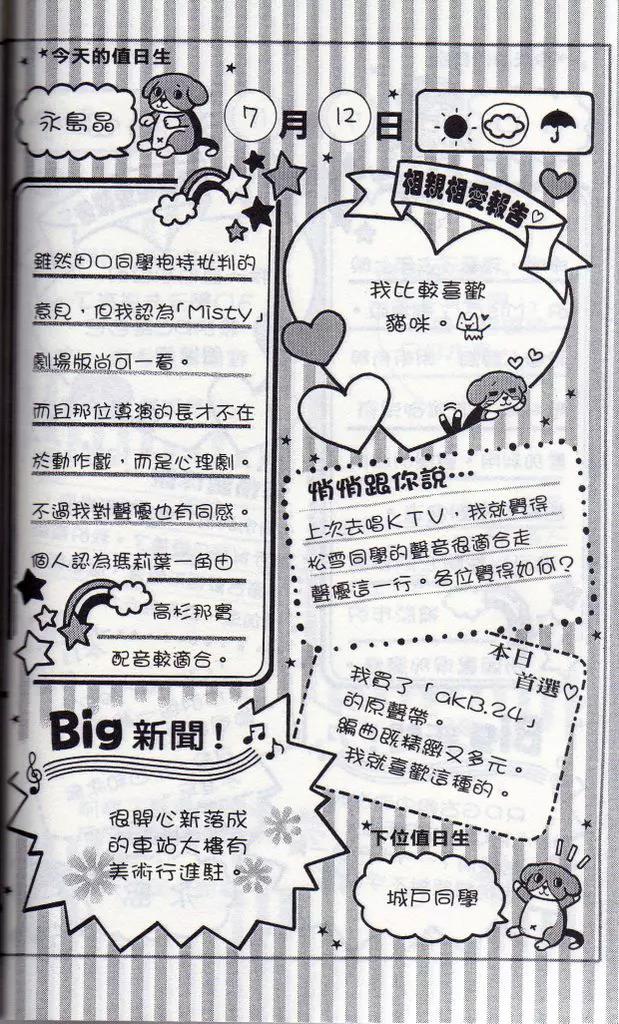 今天的值日生
永島晶
7月12日
雖然田口同學抱持批判的
意見，但我認為「Misty」
劇場版尚可一看。
而且那位導演的長才不在
於動作戲，而是心理劇。
不過我對聲優也有同感。
個人認為瑪莉葉一角由
高杉那實
配音較適合。
相親相愛報告♡
我比較喜歡
貓咪。
悄悄跟你說…
上次去唱KTV，我就覺得
松雪同學的聲音很適合走
聲優這一行。各位覺得如何？
本日
首選♡
我買了「akB.24」
的原聲帶。
編曲既精緻又多元。
我就喜歡這種的。
Big 新聞！
很開心新落成
的車站大樓有
美術行進駐。
下位值日生
城戸同學